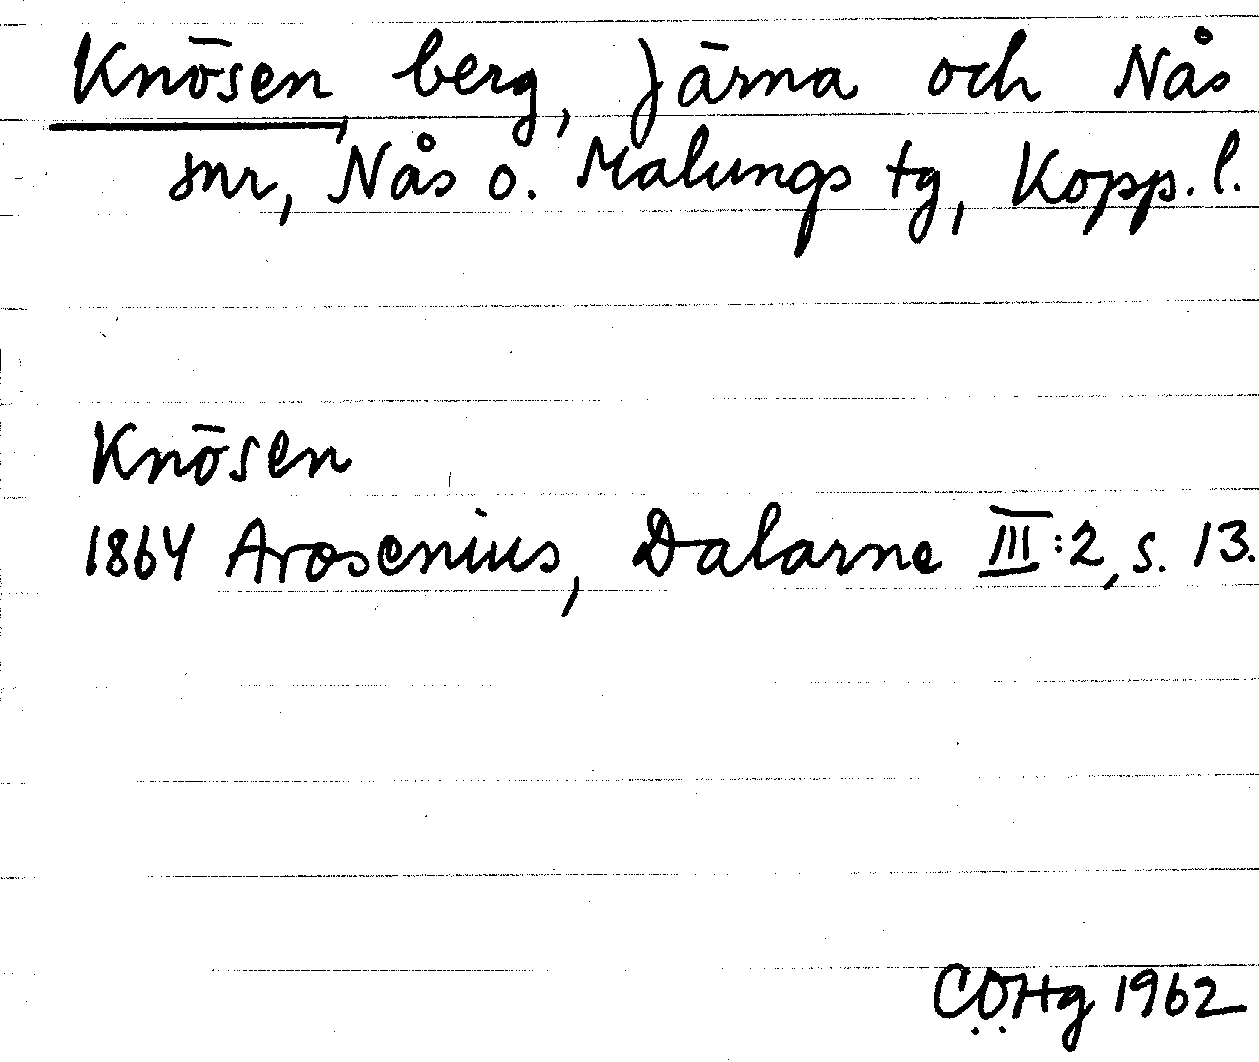 Knösen, berg, Järna och Nås
snr, Nås o. Malungs tg, Kopp. l.
Knösen
1864 Arosenius, Dalarne III:2, s. 13.
CÖHg 1962